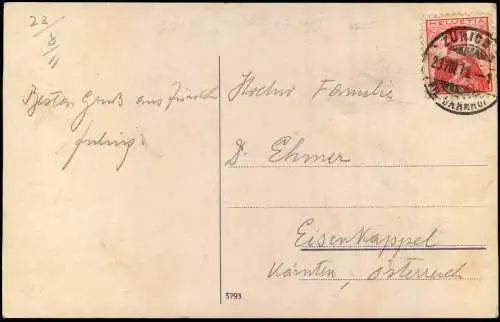 23/8/11
Besten Gruß aus Zürich
Hochw Familie
D. Ehmer
Eisenkappel
Kärnten, Österreich
HELVETIA
ZÜRICH
BAHNHOF
3793